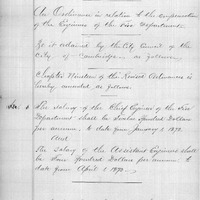 An Ordinance in relation to the Compensation
of the Engineers of the Fire Department.
Be it ordained by the City Council of the
City of Cambridge as follows.
Chapter Nineteen of the Revised Ordinances is
hereby amended as follows.
The salary of the Chief Engineer of the Fire
Department shall be Twelve Hundred Dollars
per annum, to date from January 1, 1873.
And
The salary of the Assistant Engineers shall
be Four Hundred Dollars per annum to
date from April 1, 1873.